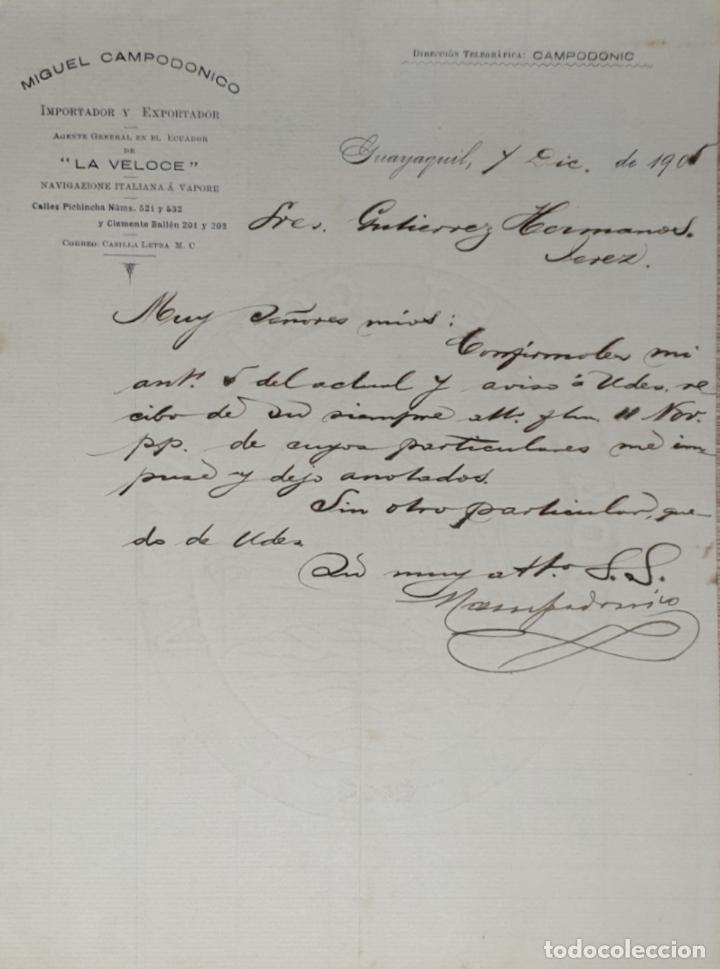 MIGUEL CAMPODONICO
IMPORTADOR Y EXPORTADOR
AGENTE GENERAL EN EL ECUADOR
DE
"LA VELOCE"
NAVIGAZIONE ITALIANA Á VAPORE
Calles Pichincha Núms. 521 y 532
y Clemente Ballén 201 y 203
CORREO: CASILLA LETRA M. C
DIRECCIÓN TELEGRÁFICA: CAMPODONIC
Guayaquil, 7 Dic. de 190
Sres. Gutierrez Hermanos.
Jerez.
Muy Señores mios:
Confirmoles mi
antr. 5 del actual y aviso á Udes. re-
cibo de su siempre att. 11 Nov.
pp. de cuyos particulares me im
puse y dejo anotados.
Sin otro particular, que-
do de Udes
Su muy atto. S. S.
MCampodonico
todocoleccion
todocoleccion.net